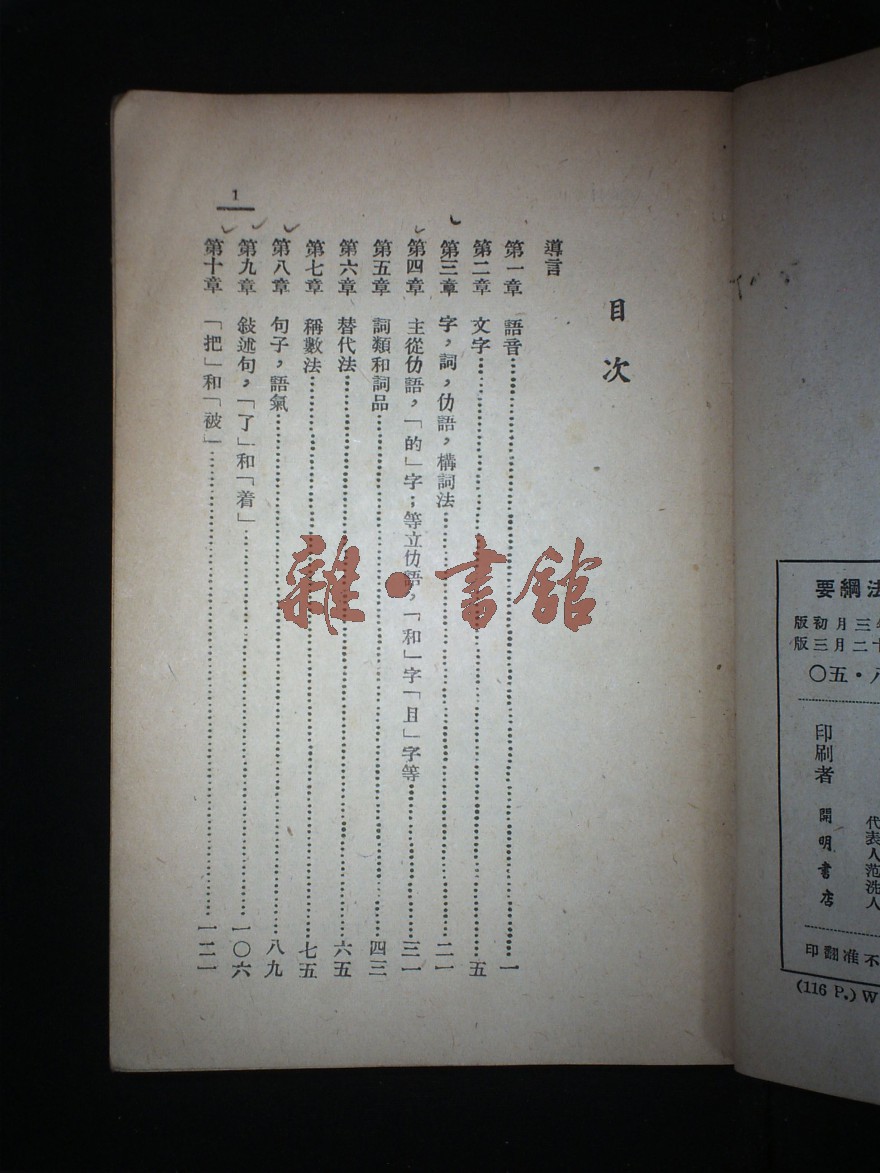 要綱法
版初月三年
版三月二十
〇五·八
印刷者 開明書店
代表人范洗人
印翻准不
(116 P.) W
目次
導言
第一章 語音……一
第二章 文字……五
第三章 字，詞，仂語，構詞法……二一
第四章 主從仂語，「的」字；等立仂語，「和」字「且」字等……三一
第五章 詞類和詞品……四三
第六章 替代法……六五
第七章 稱數法……七五
第八章 句子，語氣……八九
第九章 敍述句，「了」和「着」……一〇六
第十章 「把」和「被」……一二一
1
雜·書館